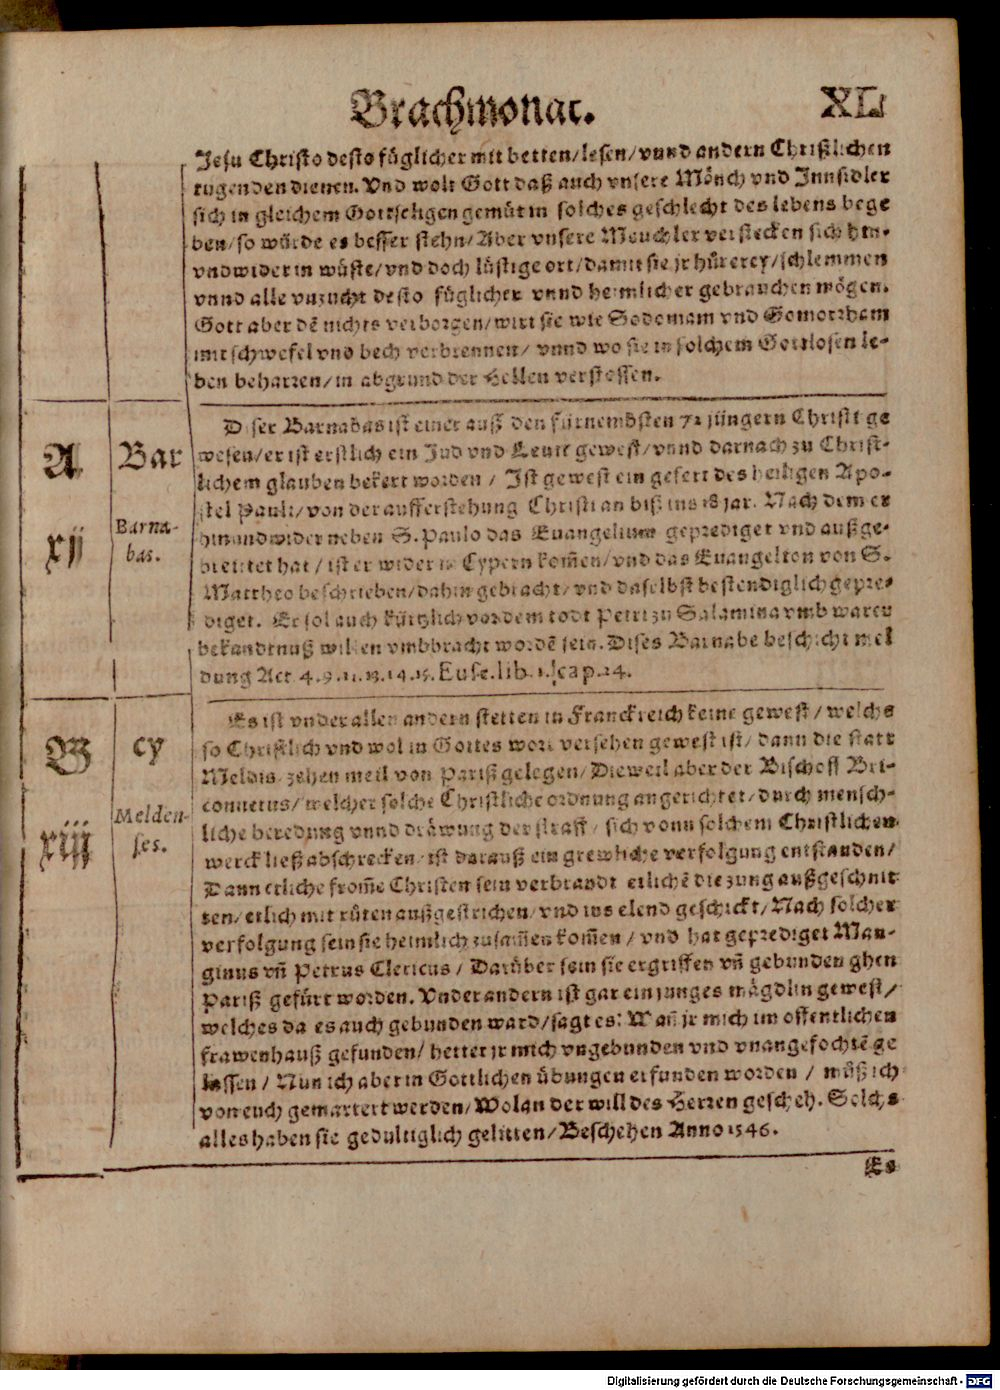 Brachmonat.
XLI
Jesu Christo desto füglicher mit betten/lesen/vnnd andern Christlichen
tugenden dienen. Vnd wolt Gott daß auch vnsere Mönch vnd Innsidler
sich in gleichem Gottseligen gemüt in solches geschlecht des lebens bege
ben/so würde es besser stehn/Aber vnsere Meuchler verstecken sich hin-
vnd wider in wüste/vnd doch lüstige ort/damit sie jr hürerey/schlemmen
vnnd alle vnzucht desto füglicher vnnd heimlicher gebrauchen mögen.
Gott aber dē nichts verborgen/wirt sie wie Sodomam vnd Gomorrham
mit schwefel vnd bech verbrennen/ vnnd wo sie in solchem Gottlosen le-
ben beharren/in abgrund der Hellen verstossen.
A
Bar
xij
Barna-
bas.
Diser Barnabas ist einer auß den fürnembsten 72 jüngern Christi ge
wesen/er ist erstlich ein Jud vnd Leuit gewest/vnnd darnach zu Christ-
lichem glauben bekert worden / Ist gewest ein gefert des heiligen Apo-
stel Pauli/von der aufferstehung Christi an biß ins 18 jar. Nach dem er
hin und wider neben S. Paulo das Euangelium geprediget vnd außge-
breittet hat / ist er wider in Cypern kom̄en/vnd das Euangelion von S.
Mattheo beschrieben/dahin gebracht/ vnd daselbst bestendiglich gepre-
diget. Er sol auch kürtzlich vor dem todt Petri zu Salamina vmb warer
bekandtnuß willen vmbbracht wordē sein. Dises Barnabe beschicht mel
dung Act. 4.9.11.13.14.15. Euse.lib.1.cap.14.
B
cy
xiij
Melden-
ses.
Es ist vnder allen andern stetten in Franckreich keine gewest / welche
so Christlich vnd wol in Gottes wort versehen gewest ist/ dann die statt
Meldis zehen meil von Pariß gelegen/ Dieweil aber der Bischoff Bri-
connetus/ welcher solche Christliche ordnung angerichtet/durch mensch-
liche beredung vnnd dräwung der straff / sich vonn solchem Christlichen
werck ließ abschrecken/ist darauß ein grewliche verfolgung entstanden/
Dann etliche from̄e Christen sein verbrandt etlichē die zung außgeschnit
ten/etlich mit rüten außgestrichen/vnd ins elend geschickt/Nach solcher
verfolgung sein sie heimlich zusam̄en kom̄en / vnd hat geprediget Man-
ginus vn̄ Petrus Clericus / Darüber sein sie ergriffen vn̄ gebunden ghen
Pariß gefürt worden. Vnder andern ist gar ein junges mägdlin gewest/
welches da es auch gebunden ward/sagt es: Wan̄ jr mich im offentlichen
frawenhauß gefunden/ hettet jr mich vngebunden vnd vnangefochtē ge
lassen / Nun ich aber in Gottlichen übungen erfunden worden / müß ich
von euch gemartert werden/Wolan der will des Herren gescheh. Solchs
alles haben sie gedultiglich gelitten/Beschehen Anno 1546.
Es
Digitalisierung gefördert durch die Deutsche Forschungsgemeinschaft - DFG